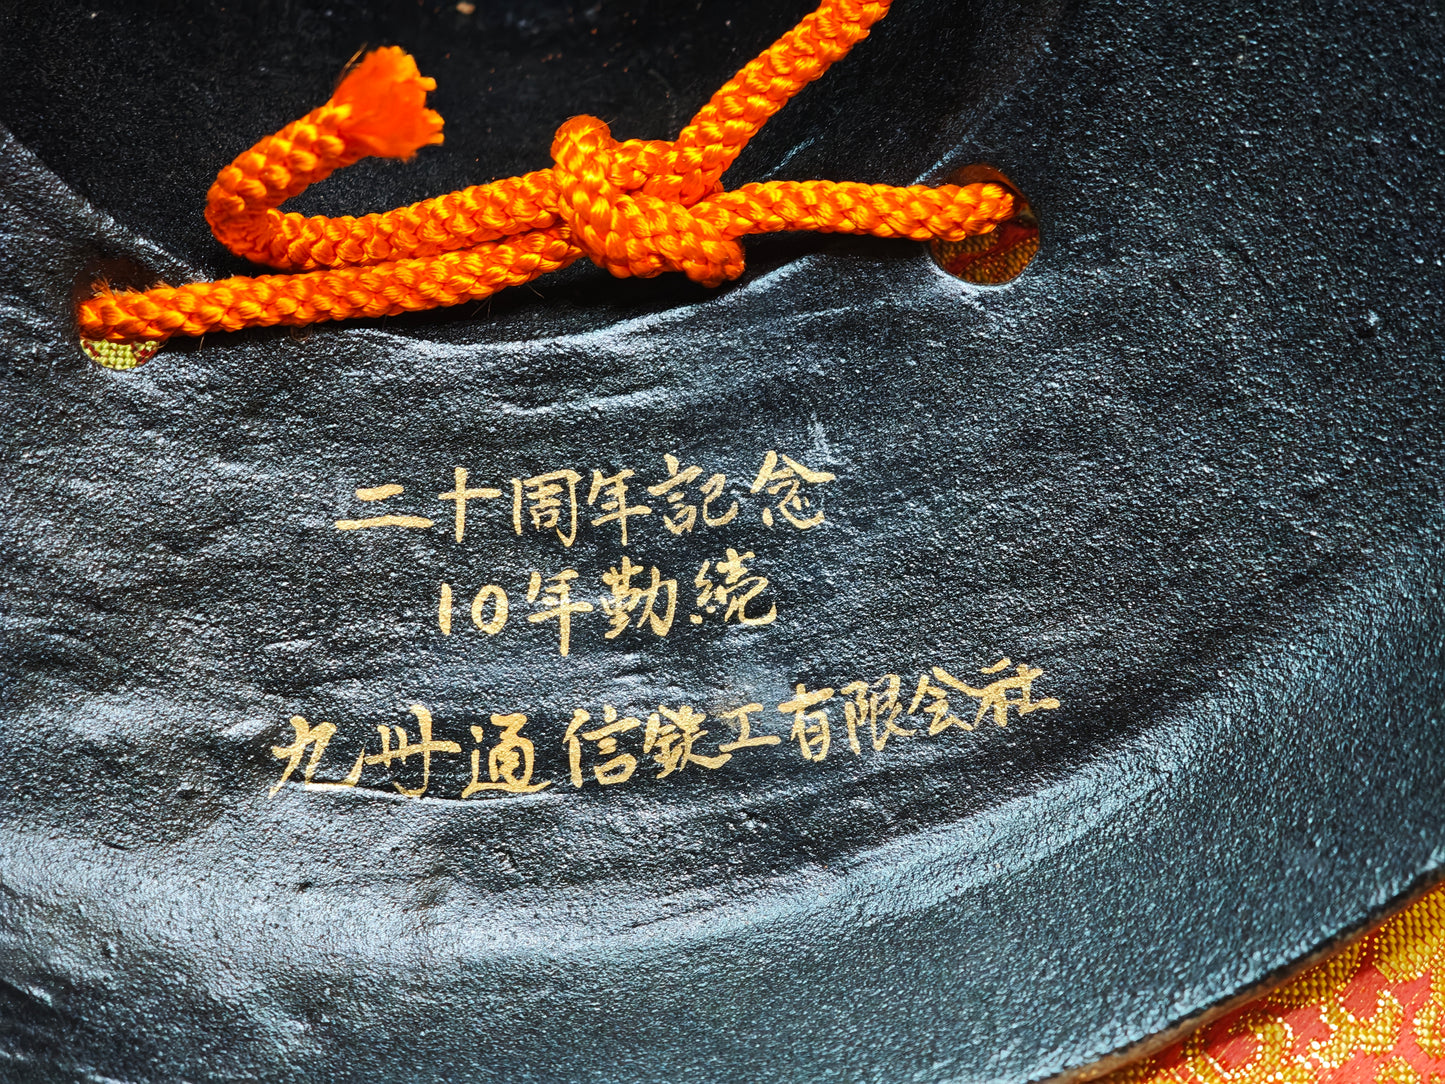 二十周年記念
10年勤続
九州通信鉄工有限会社